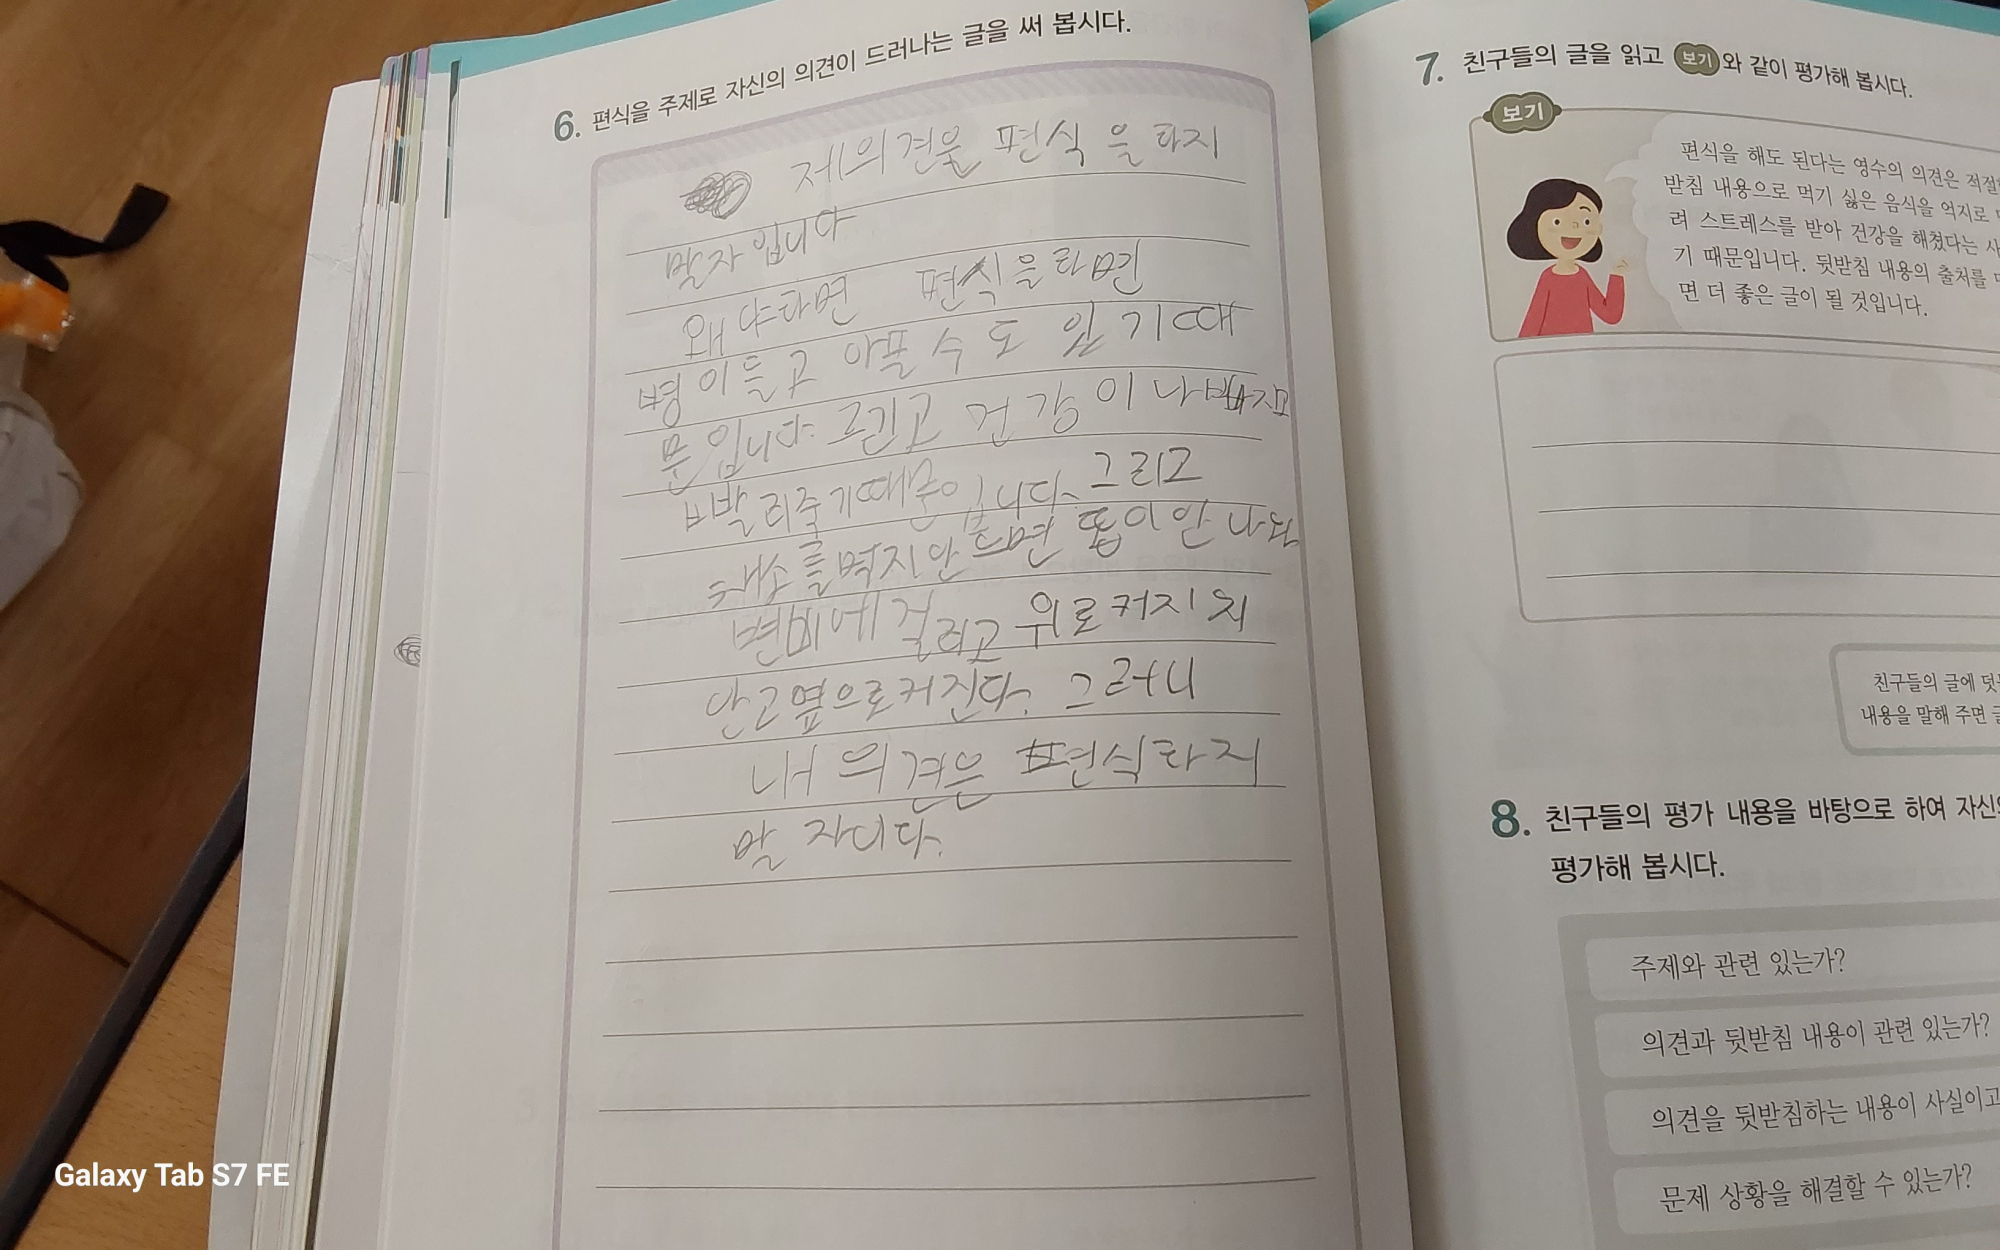 6. 편식을 주제로 자신의 의견이 드러나는 글을 써 봅시다.
제 의견을 편식 을 타지
말자 입니다
왜냐하면 편식을 하면
병이 들고 아플 수 도 있 기 때
문 입니다. 그리고 건강 이 나빠지고
그리고
채소를 먹지 안 으면 똥이 안 나와
변비에 걸리고 위로 커지 지
안고 옆으로 커진다. 그러니
내 의견은 편식하지
말 자니다.
7. 친구들의 글을 읽고 보기와 같이 평가해 봅시다.
보기
편식을 해도 된다는 영수의 의견은
받침 내용으로 먹기 싫은 음식을 억지로
려 스트레스를 받아 건강을 해쳤다는
기 때문입니다. 뒷받침 내용의 출처를
면 더 좋은 글이 될 것입니다.
친구들의 글에
내용을 말해 주면
8. 친구들의 평가 내용을 바탕으로 하여
평가해 봅시다.
주제와 관련 있는가?
의견과 뒷받침 내용이 관련 있는가?
의견을 뒷받침하는 내용이 사실이고
문제 상황을 해결할 수 있는가?
Galaxy Tab S7 FE